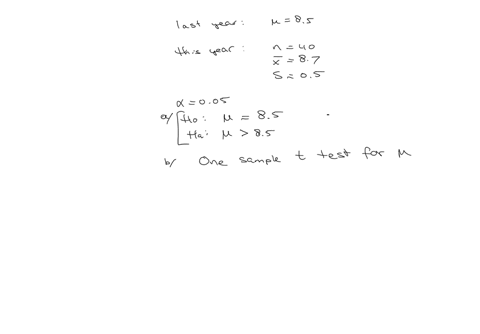 last year: μ = 8.5
this year: n = 40
x̄ = 8.7
S = 0.5
α = 0.05
a/ Ho: μ = 8.5
Ha: μ > 8.5
b/ One sample t test for μ